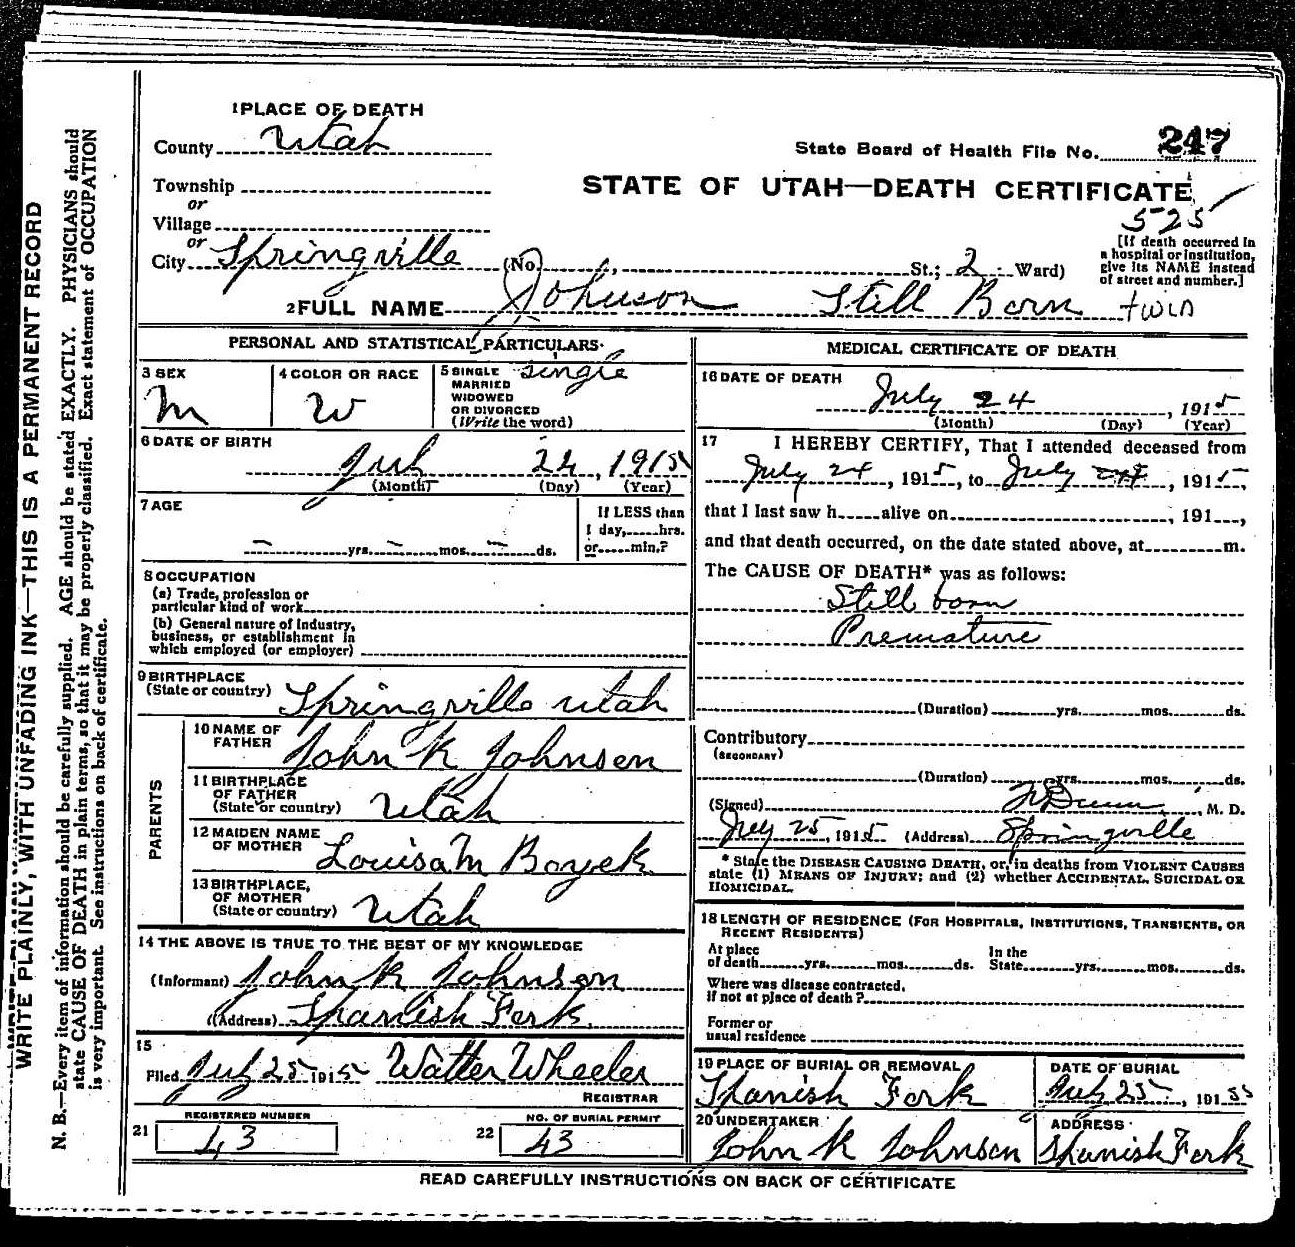 WRITE PLAINLY, WITH UNFADING INK—THIS IS A PERMANENT RECORD
N. B.—Every item of information should be carefully supplied. AGE should be stated EXACTLY. PHYSICIANS should
state CAUSE OF DEATH in plain terms, so that it may be properly classified. Exact statement of OCCUPATION
is very important. See instructions on back of certificate.
1 PLACE OF DEATH
County Utah
Township
or
Village
or
City Springville
State Board of Health File No. 247
STATE OF UTAH—DEATH CERTIFICATE
525
[If death occurred in
a hospital or institution,
give its NAME instead
of street and number.]
(No. St.; 2 Ward)
2 FULL NAME Johnson Still Born twin
PERSONAL AND STATISTICAL PARTICULARS
3 SEX
M
4 COLOR OR RACE
W
5 SINGLE
MARRIED
WIDOWED
OR DIVORCED
(Write the word)
single
6 DATE OF BIRTH
July 24, 1915
(Month) (Day) (Year)
7 AGE
– yrs. – mos. – ds.
If LESS than
1 day, hrs.
or min.?
8 OCCUPATION
(a) Trade, profession or
particular kind of work
(b) General nature of Industry,
business, or establishment in
which employed (or employer)
9 BIRTHPLACE
(State or country) Springville Utah
PARENTS
10 NAME OF
FATHER John K Johnsen
11 BIRTHPLACE
OF FATHER
(State or country) Utah
12 MAIDEN NAME
OF MOTHER Louisa M Boyack
13 BIRTHPLACE,
OF MOTHER
(State or country) Utah
14 THE ABOVE IS TRUE TO THE BEST OF MY KNOWLEDGE
(Informant) John K Johnson
(Address) Spanish Fork
15
Filed July 25 1915 Walter Wheeler
REGISTRAR
REGISTERED NUMBER
21 43
NO. OF BURIAL PERMIT
22 43
MEDICAL CERTIFICATE OF DEATH
16 DATE OF DEATH
July 24, 1915
(Month) (Day) (Year)
17 I HEREBY CERTIFY, That I attended deceased from
July 24, 1915, to July 24, 1915,
that I last saw h alive on , 191 ,
and that death occurred, on the date stated above, at m.
The CAUSE OF DEATH* was as follows:
Still born
Premature
(Duration) yrs. mos. ds.
Contributory
(SECONDARY)
(Duration) yrs. mos. ds.
(Signed) Dunn, M. D.
July 25, 1915 (Address) Springville
* State the DISEASE CAUSING DEATH, or, in deaths from VIOLENT CAUSES
state (1) MEANS OF INJURY; and (2) whether ACCIDENTAL, SUICIDAL OR
HOMICIDAL.
18 LENGTH OF RESIDENCE (FOR HOSPITALS, INSTITUTIONS, TRANSIENTS, OR
RECENT RESIDENTS)
At place
of death yrs. mos. ds.
In the
State yrs. mos. ds.
Where was disease contracted,
If not at place of death?
Former or
usual residence
19 PLACE OF BURIAL OR REMOVAL
Spanish Fork
DATE OF BURIAL
July 25, 191
20 UNDERTAKER
John K Johnson
ADDRESS
Spanish Fork
READ CAREFULLY INSTRUCTIONS ON BACK OF CERTIFICATE